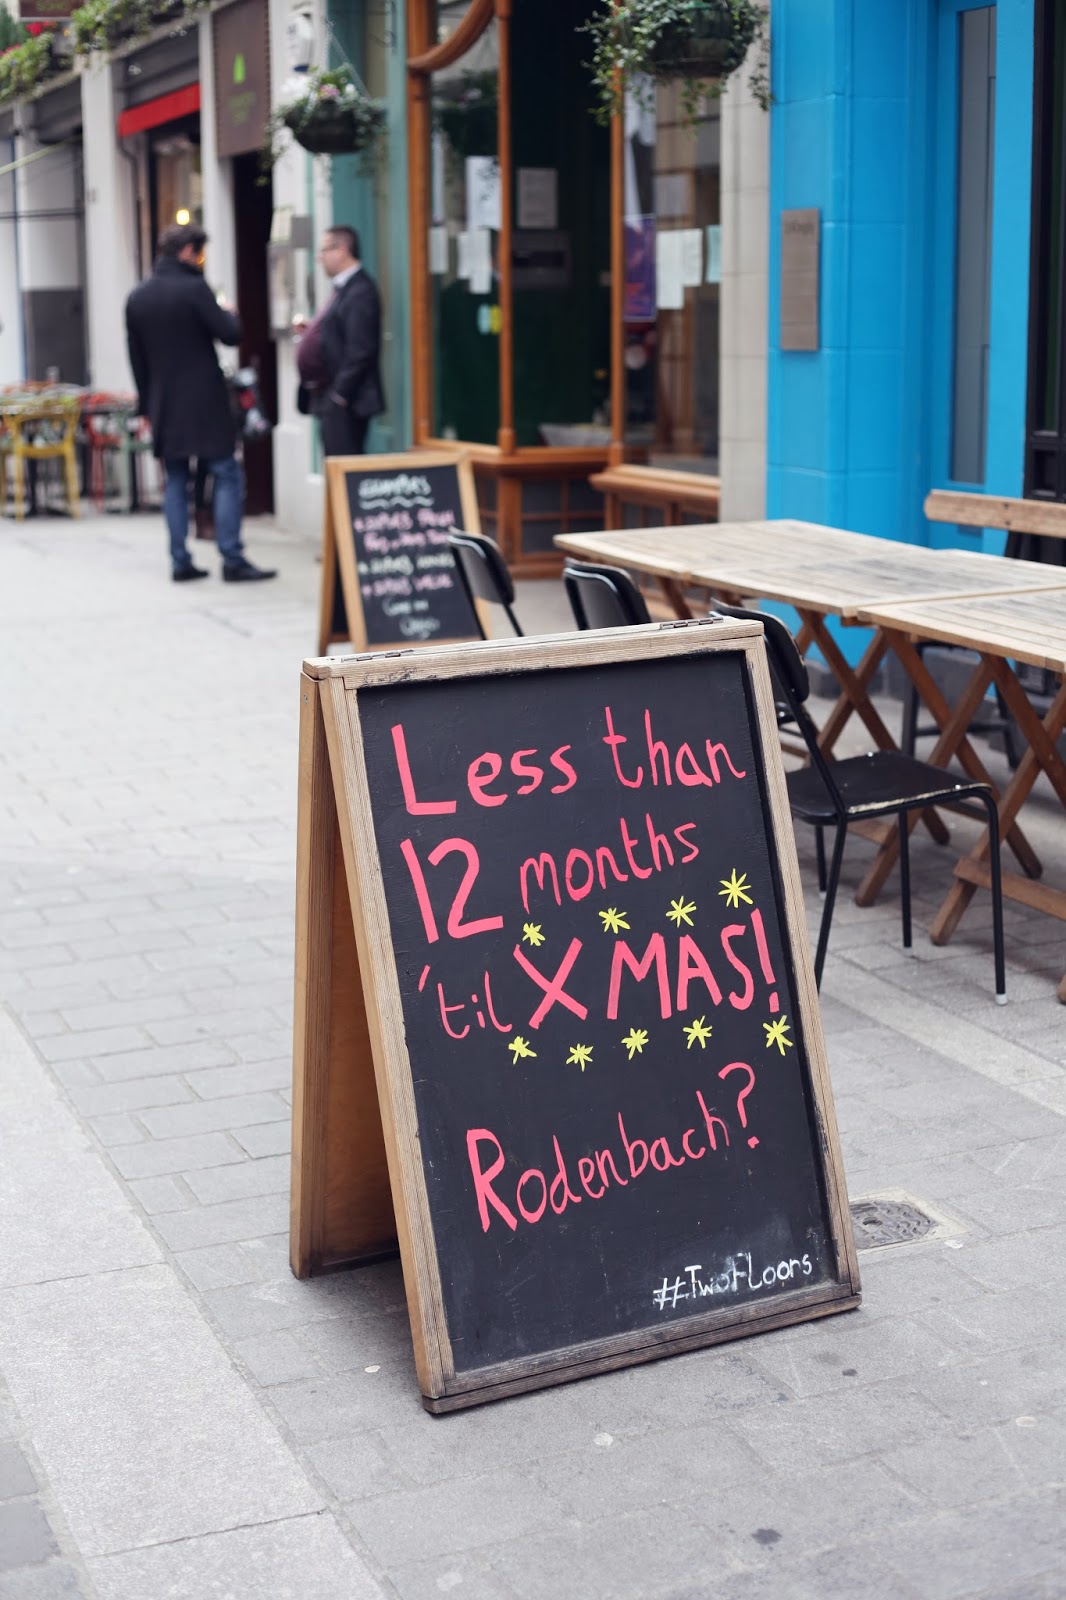 Less than
12 months
'til XMAS!
Rodenbach?
#TwoFLoors